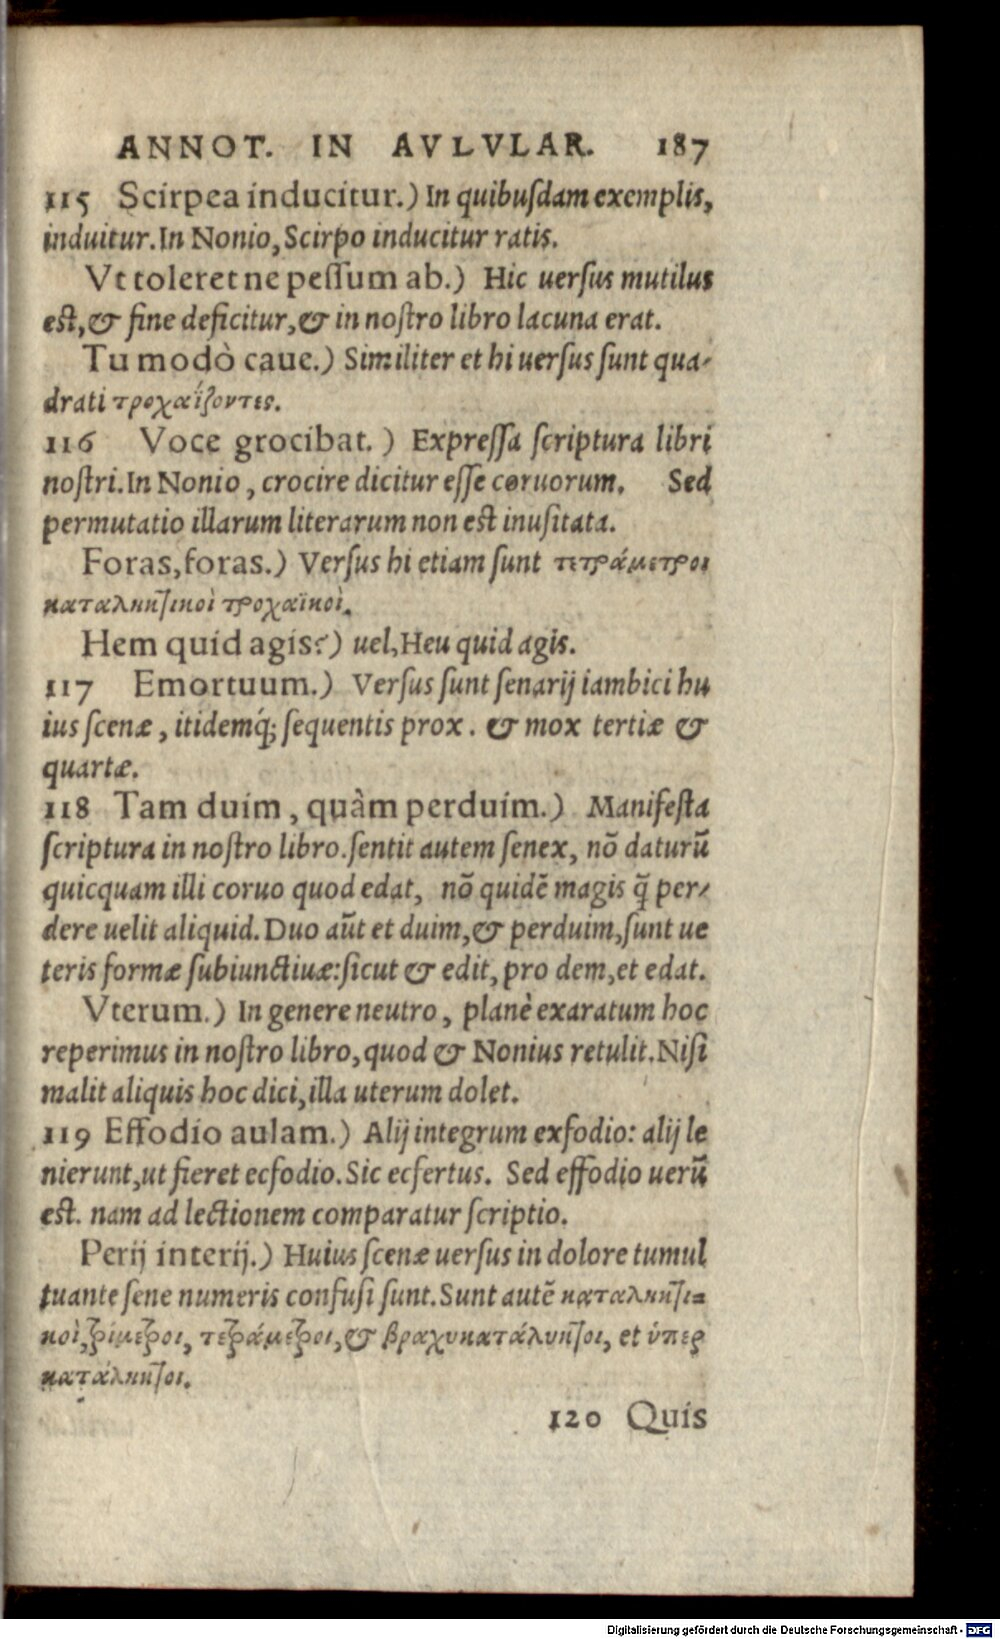 ANNOT. IN AVLVLAR. 187
115 Scirpea inducitur.) In quibuſdam exemplis,
induitur. In Nonio, Scirpo inducitur ratis.
Vt toleret ne peſſum ab.) Hic uerſus mutilus
est, & fine deficitur, & in noſtro libro lacuna erat.
Tu modò caue.) Similiter et hi uerſus ſunt qua-
drati τροχαΐζοντες.
116 Voce grocibat.) Expreſſa ſcriptura libri
noſtri. In Nonio, crocire dicitur eſſe coruorum. Sed
permutatio illarum literarum non est inuſitata.
Foras, foras.) Verſus hi etiam ſunt τετράμετροι
καταληκτικοὶ τροχαϊκοὶ.
Hem quid agis?) uel, Heu quid agis.
117 Emortuum.) Verſus ſunt ſenarij iambici hu
ius ſcenæ, itidemq́; ſequentis prox. & mox tertiæ &
quartæ.
118 Tam duim, quàm perduim.) Manifeſta
ſcriptura in noſtro libro. ſentit autem ſenex, nō daturū
quicquam illi coruo quod edat, nō quidē magis q̄ per-
dere uelit aliquid. Duo aūt et duim, & perduim, ſunt ue
teris formæ ſubiunctiuæ: ſicut & edit, pro dem, et edat.
Vterum.) In genere neutro, planè exaratum hoc
reperimus in noſtro libro, quod & Nonius retulit. Niſi
malit aliquis hoc dici, illa uterum dolet.
119 Effodio aulam.) Alij integrum exfodio: alij le
nierunt, ut fieret ecfodio. Sic ecfertus. Sed effodio uerū
est. nam ad lectionem comparatur ſcriptio.
Perij interij.) Huius ſcenæ uerſus in dolore tumul
tuante ſene numeris confuſi ſunt. Sunt autē καταληκτι=
κοὶ, τρίμετροι, τετράμετροι, & βραχυκατάλυκτοι, et ὑπερ
κατάληκτοι.
120 Quis
Digitalisierung gefördert durch die Deutsche Forschungsgemeinschaft - DFG